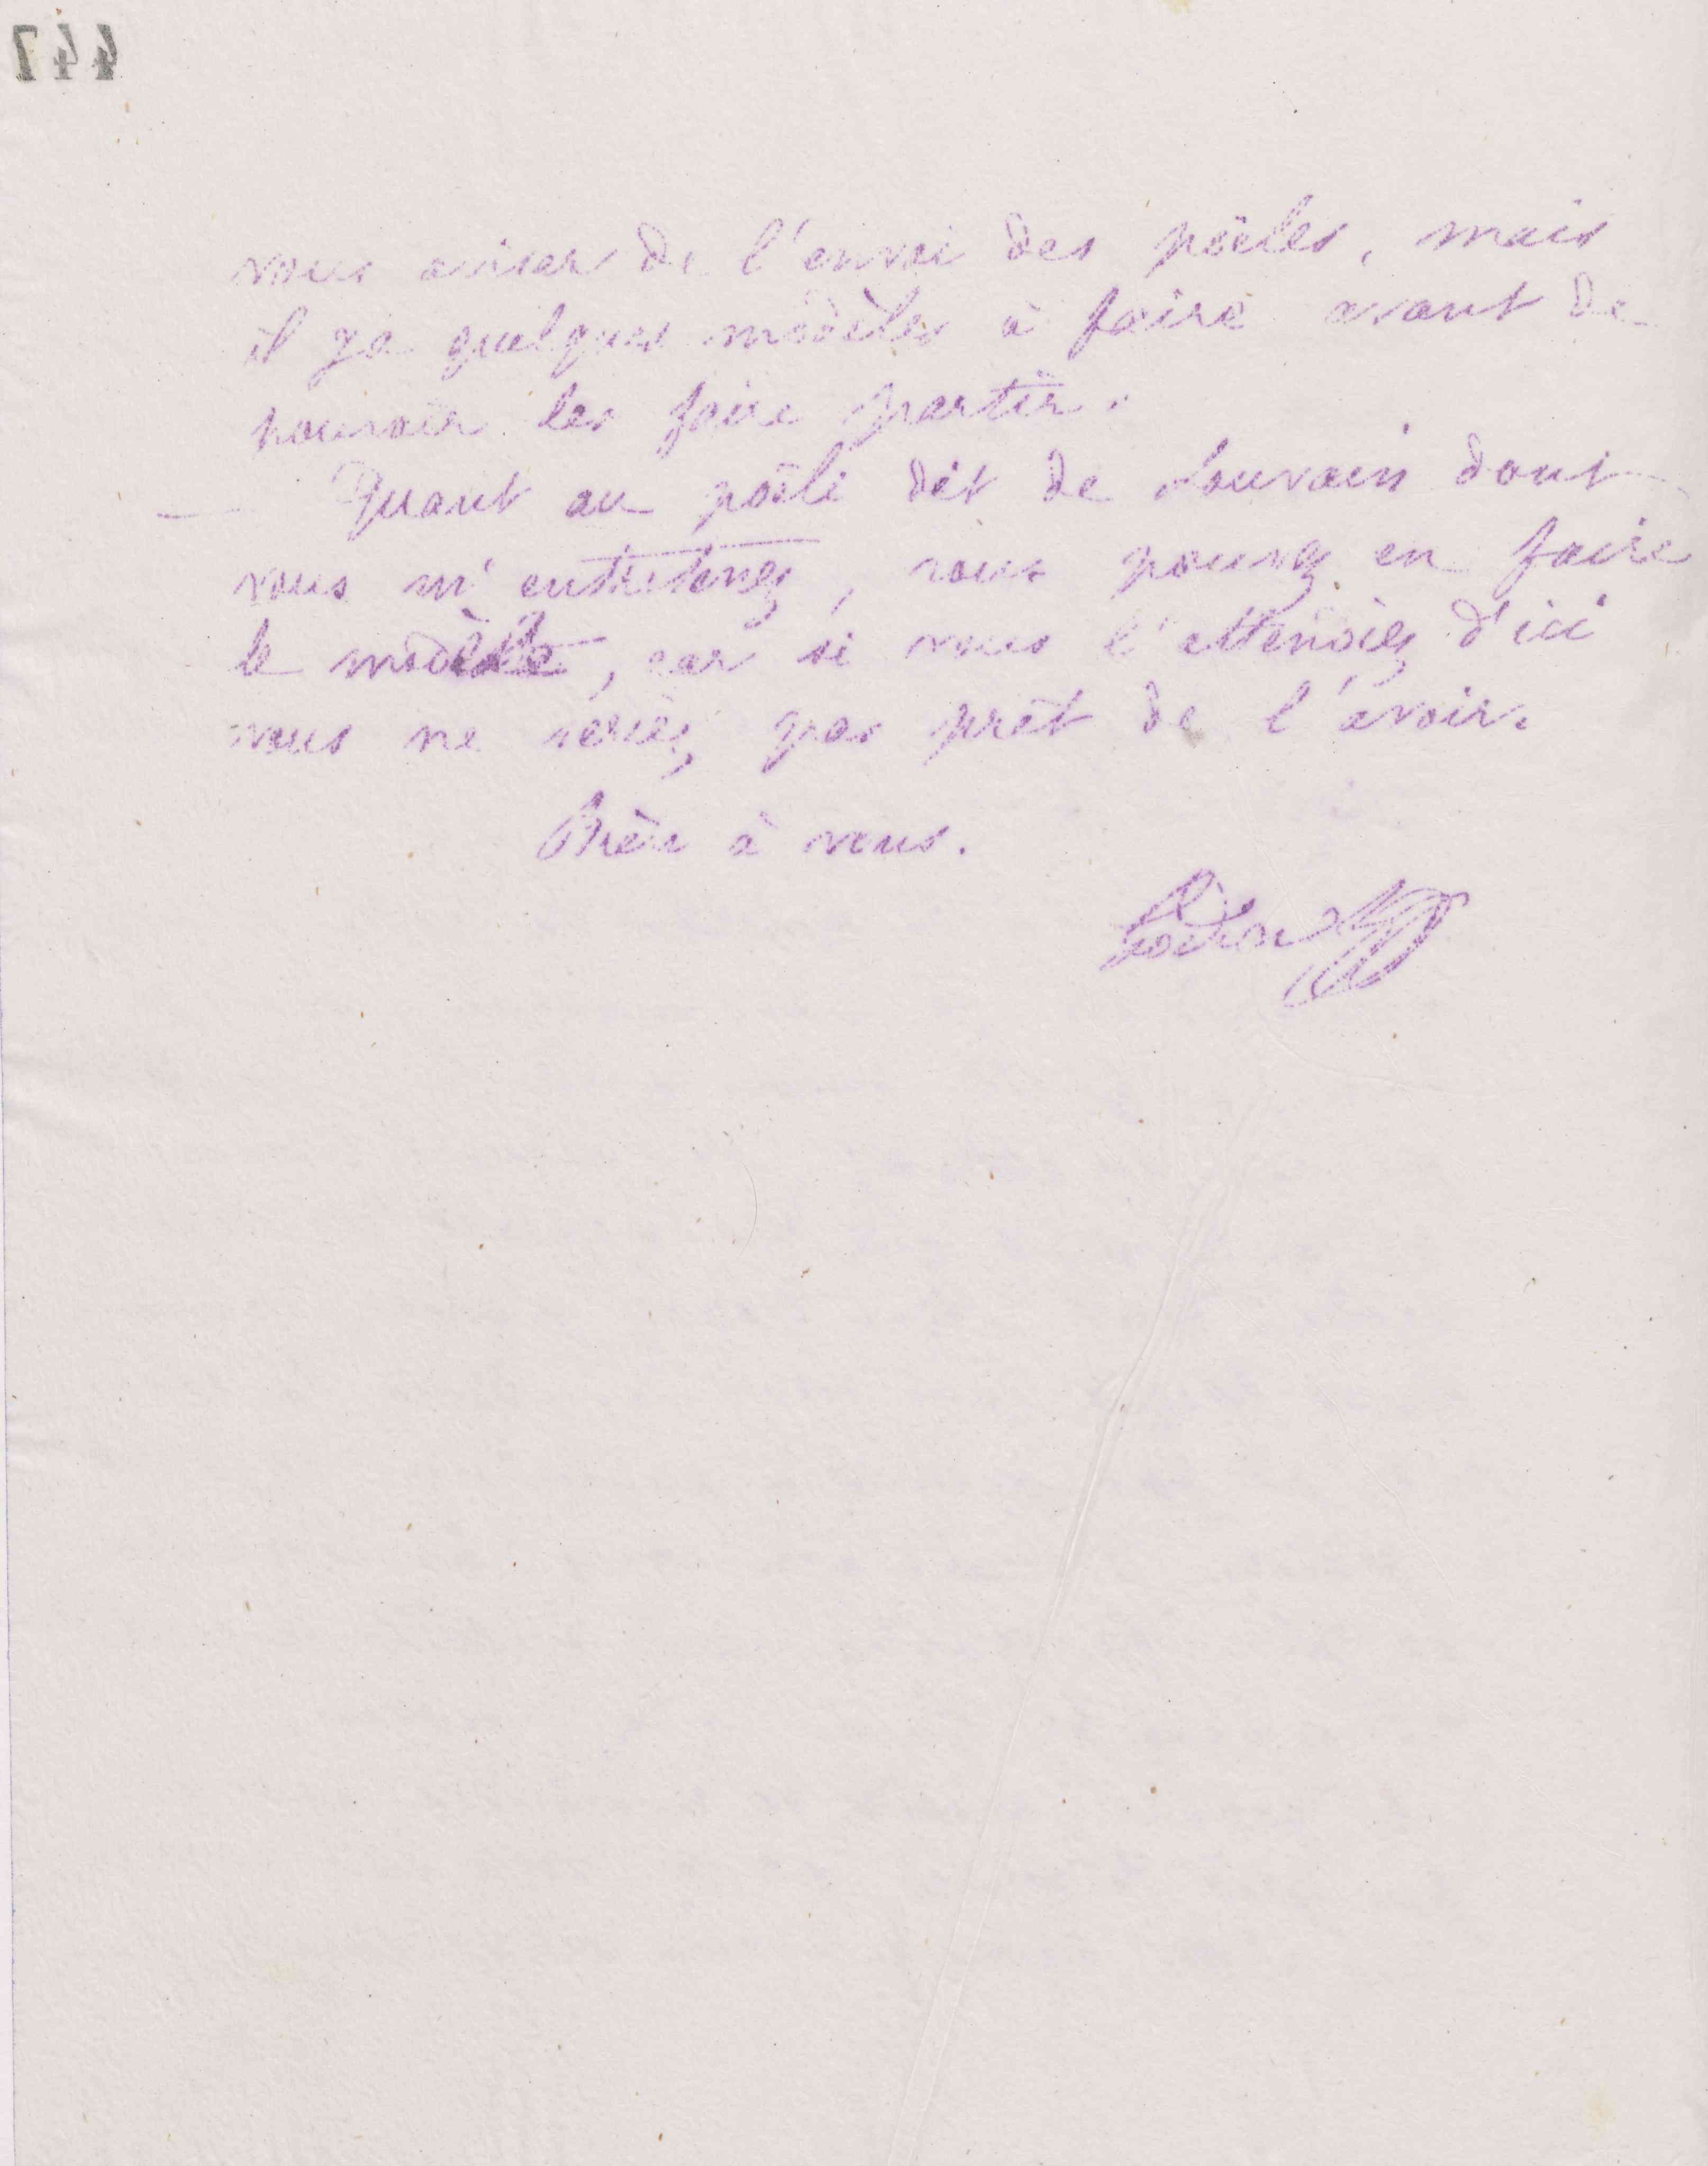 447
vous aviser de l'envoi des poëles, mais
il y a quelques modèles à faire avant de
pouvoir les faire partir.
— Quant au poêle dit de Louvain dont
vous m'entretenez, vous pouvez en faire
le modèle, car si vous l'attendiez d'ici
vous ne seriez pas prêt de l'avoir.
Bien à vous.
Godin